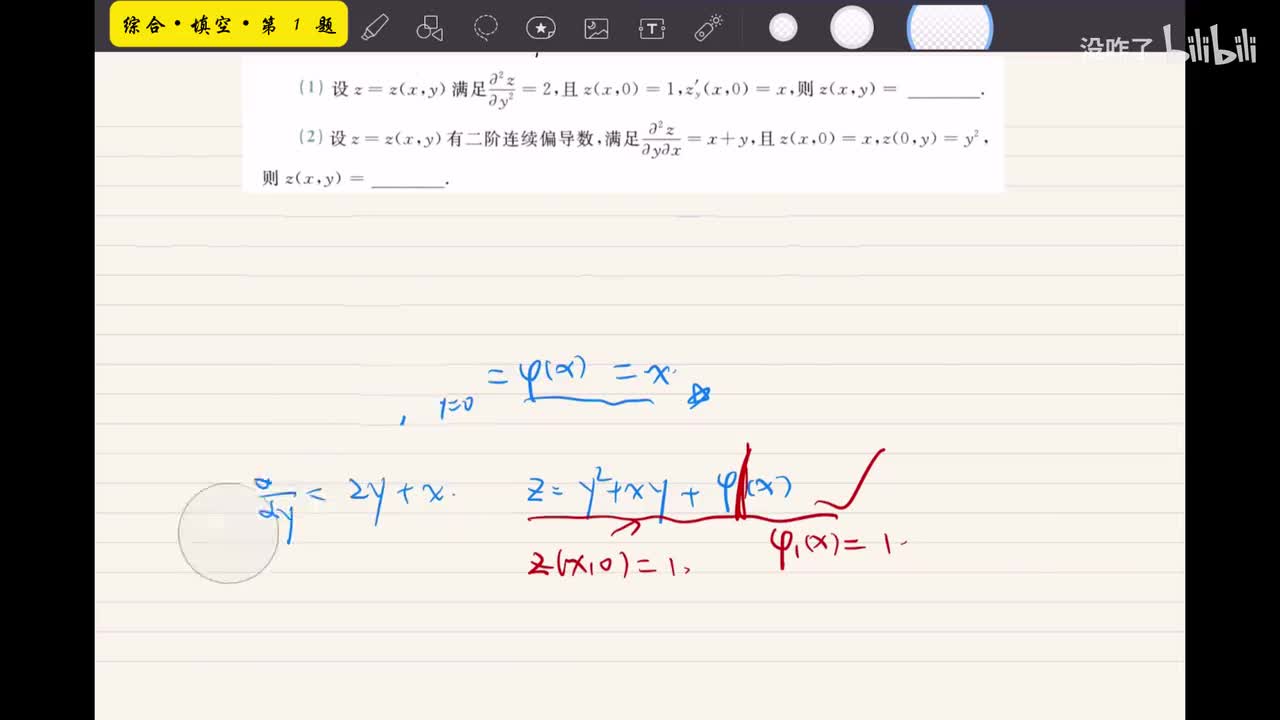 综合·填空·第 1 题
没咋了 bilibili
(1) 设 z = z(x,y) 满足 ∂²z/∂y² = 2,且 z(x,0) = 1, z′y(x,0) = x,则 z(x,y) = ________.
(2) 设 z = z(x,y) 有二阶连续偏导数,满足 ∂²z/∂y∂x = x+y,且 z(x,0) = x, z(0,y) = y²,
则 z(x,y) = ________.
= φ(x) = x.
, y=0
= 2y+x. z = y²+xy + φ₁(x)
z(x,0) = 1, φ₁(x) = 1.